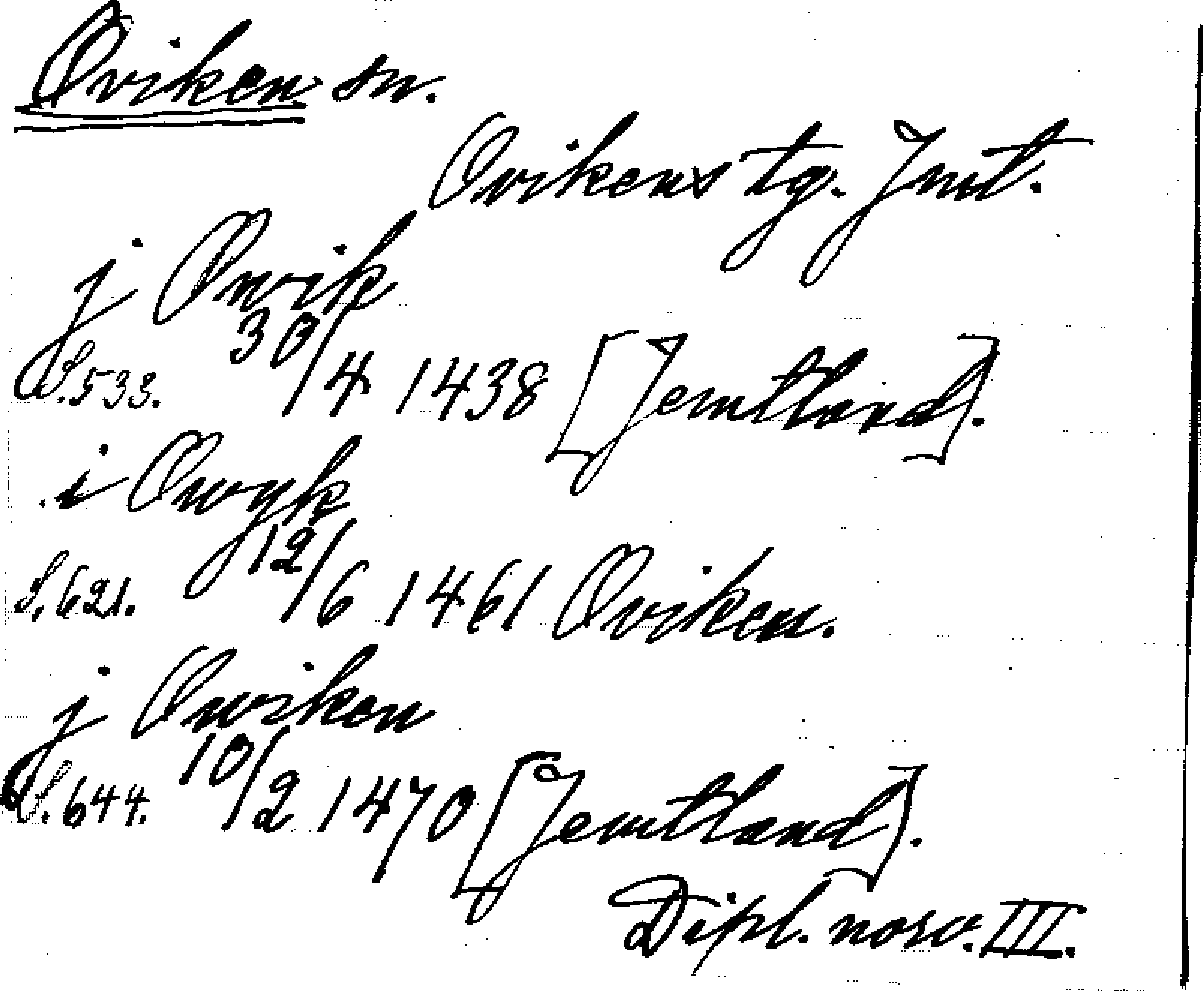 Oviken sn.
Ovikens tg. Jmt.
j Owik
S. 533. 30/4 1438 [Jemtland].
i Owyk
S. 621. 12/6 1461 Oviken.
j Owiken
S. 644. 10/2 1470 [Jemtland].
Dipl. norv. III.